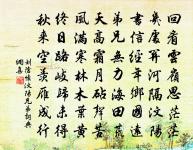 回看雲嶺思茫茫
幾處關河隔汶陽
書信經年鄉國遠
弟兄無力海田荒
天高霜月砧聲苦
風滿寒林木葉黃
終日路岐歸未得
秋來空羨雁成行
劉滄懷汶陽兄弟詞典
網集